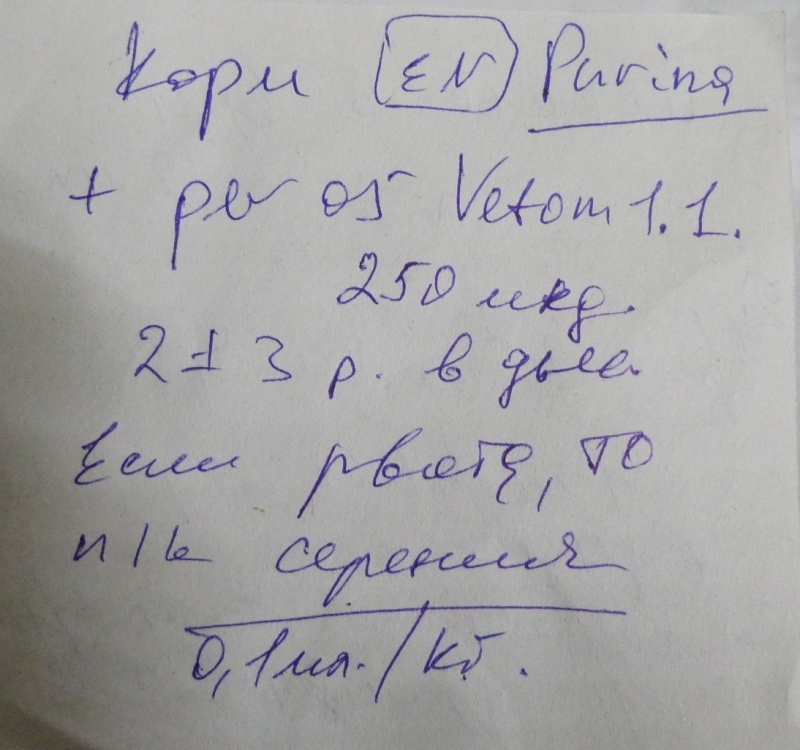 Корм EN Purina
+ per os Vetom 1.1.
250
2-3 р. в
Если рвота, то
п/к серения
0,1 мл./кг.